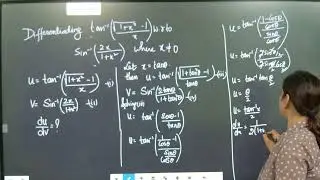 Differentiating tan⁻¹(√(1+x²) -1 / x) w.r.to
sin⁻¹(2x / 1+x²) where x≠0
u = tan⁻¹(√(1+x²) -1 / x) -(1)
V = Sin⁻¹(2x / 1+x²) -(2)
du/dv = ?
Let x = tanθ
then u = tan⁻¹(√(1+tan²θ) -1 / tanθ)
V = Sin⁻¹(2tanθ / 1+tan²θ)
u = tan⁻¹(secθ-1 / tanθ)
u = tan⁻¹(1/cosθ - 1 / sinθ/cosθ)
u = tan⁻¹(1-cosθ / cosθ / sinθ / cosθ)
u = tan⁻¹(2sin²θ/2 / 2sinθ/2 cosθ/2)
u = tan⁻¹ tan θ/2
u = θ/2
u = tan⁻¹x / 2
du/dx = 1 / 2(1+